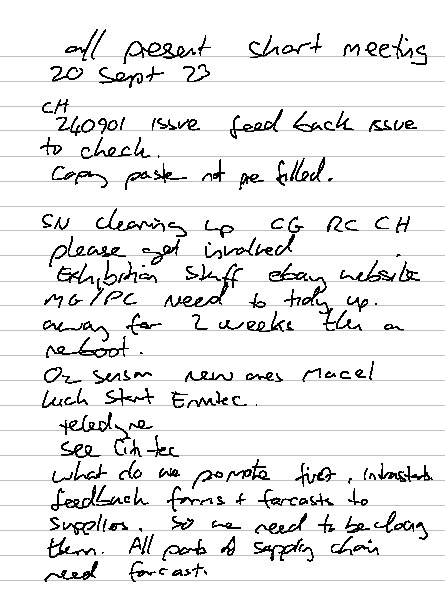 all present short meeting
20 Sept 23
CH
240901 issue feed back issue
to check.
Copy paste not pre filled.
SN cleaning up CG RC CH
please get involved
Exhibition stuff ebay website
MG/PC need to tidy up.
away for 2 weeks then a
reboot.
O2 sensor new ones
Start
teledyne
see
what do we promote first,
feedback forms + forcasts to
supplies. So we need to be doing
them. All parts of supply chain
need forcast.